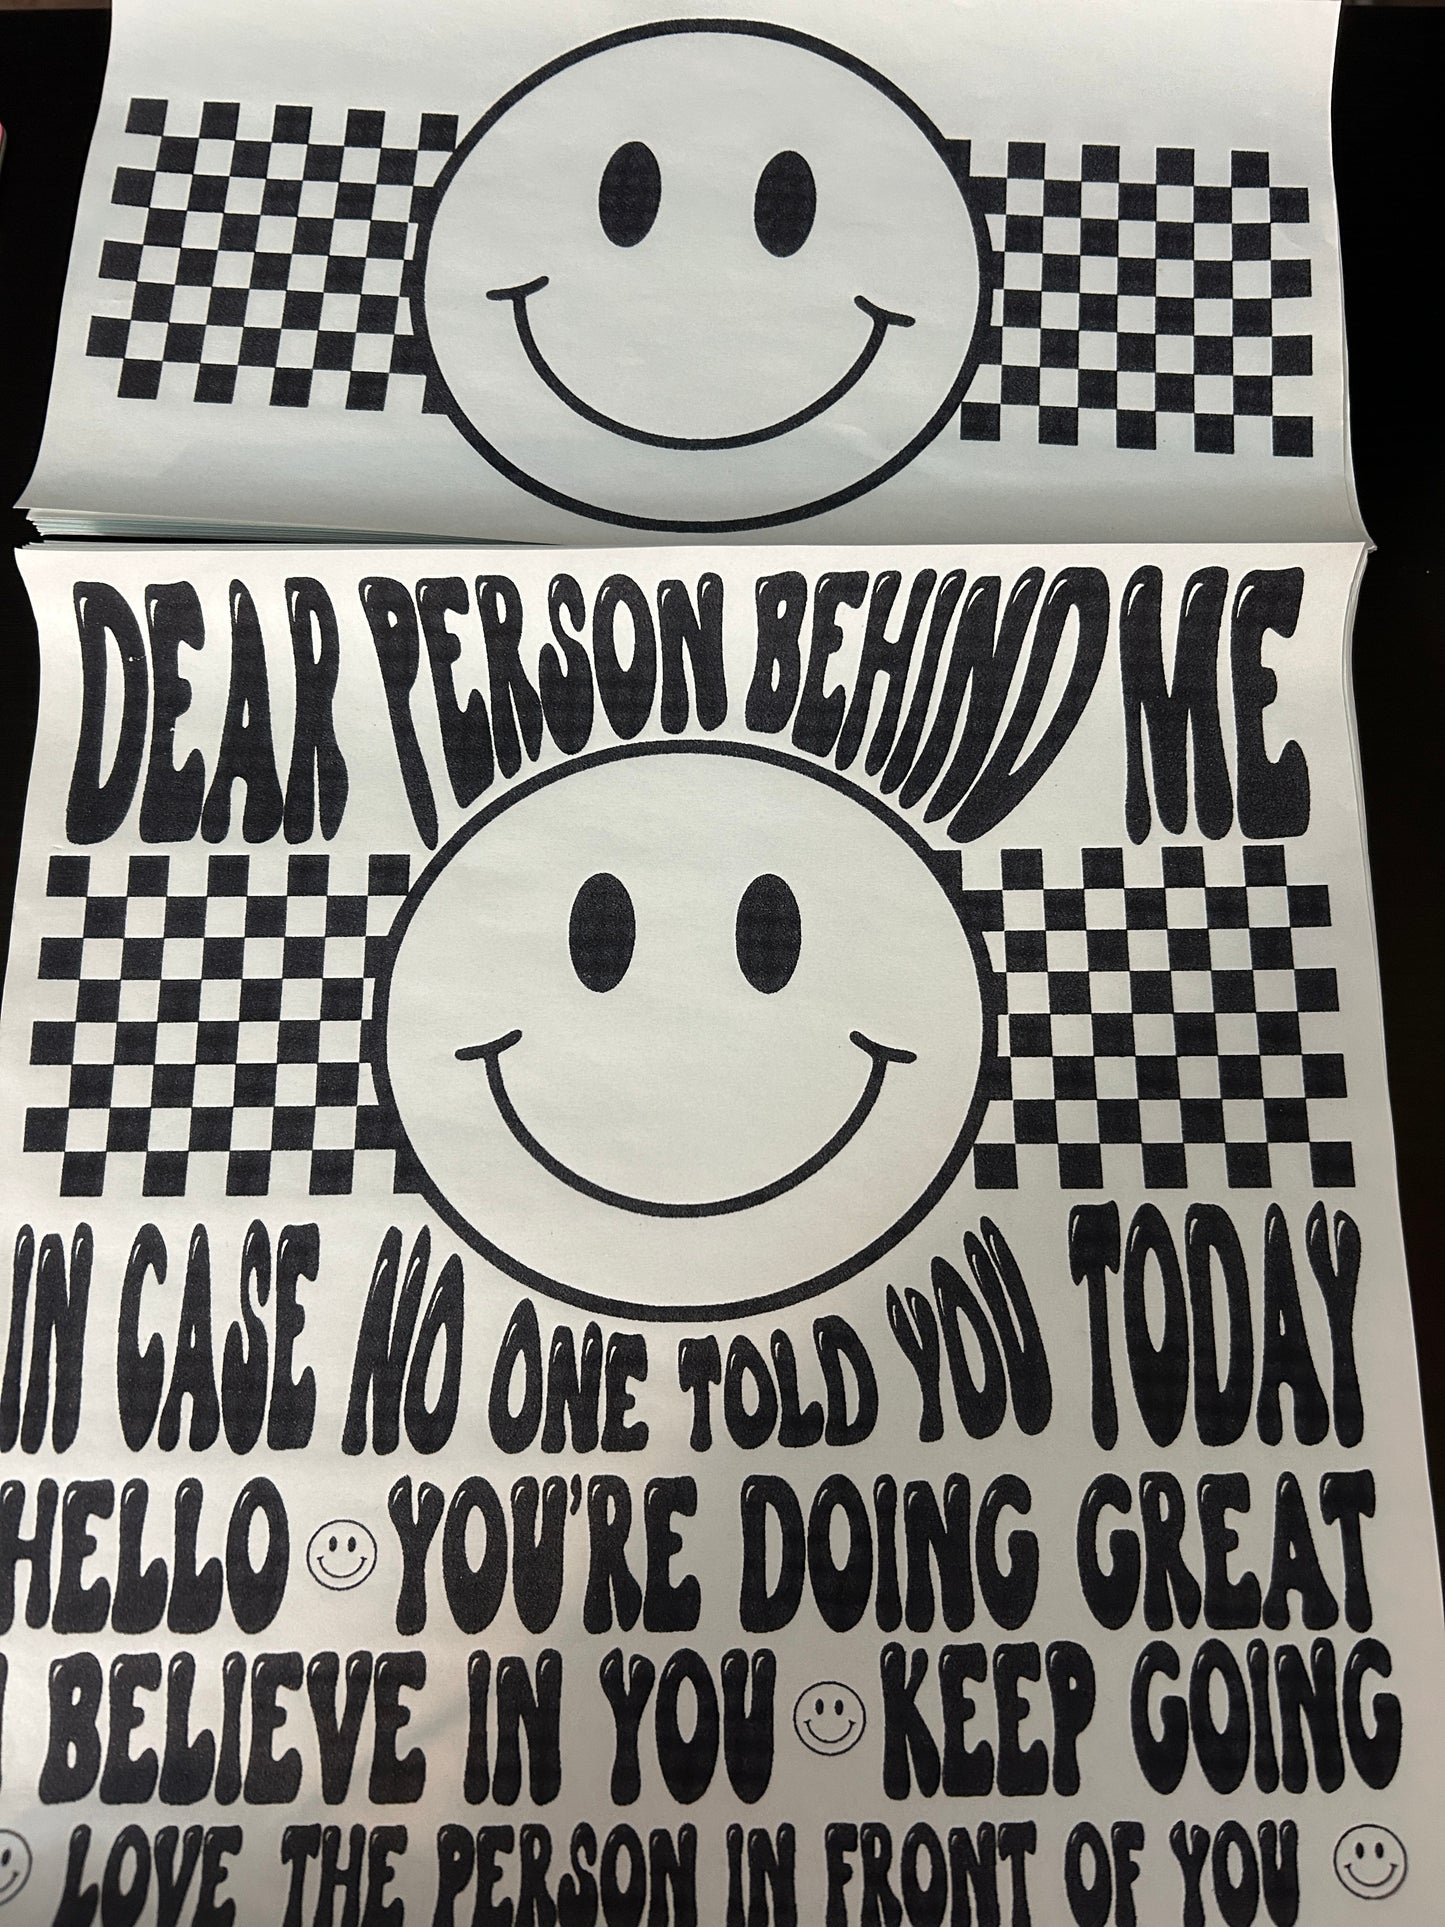 DEAR PERSON BEHIND ME
IN CASE NO ONE TOLD YOU TODAY
HELLO YOU'RE DOING GREAT
I BELIEVE IN YOU KEEP GOING
LOVE THE PERSON IN FRONT OF YOU